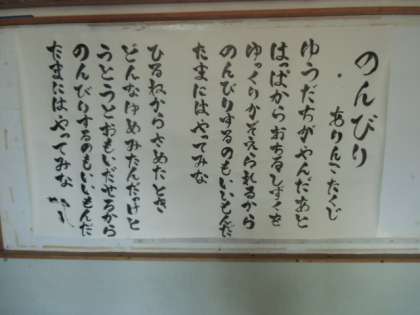 のんびり
ありんこたくじ
ゆうだちがやんだあと
はっぱからおちるしずくを
ゆっくりかぞえられるから
のんびりするのもいいもんだ
たまにはやってみな
ひるねからさめたとき
どんなゆめみたんだっけと
うとうとおもいだせるから
のんびりするのもいいもんだ
たまにはやってみな